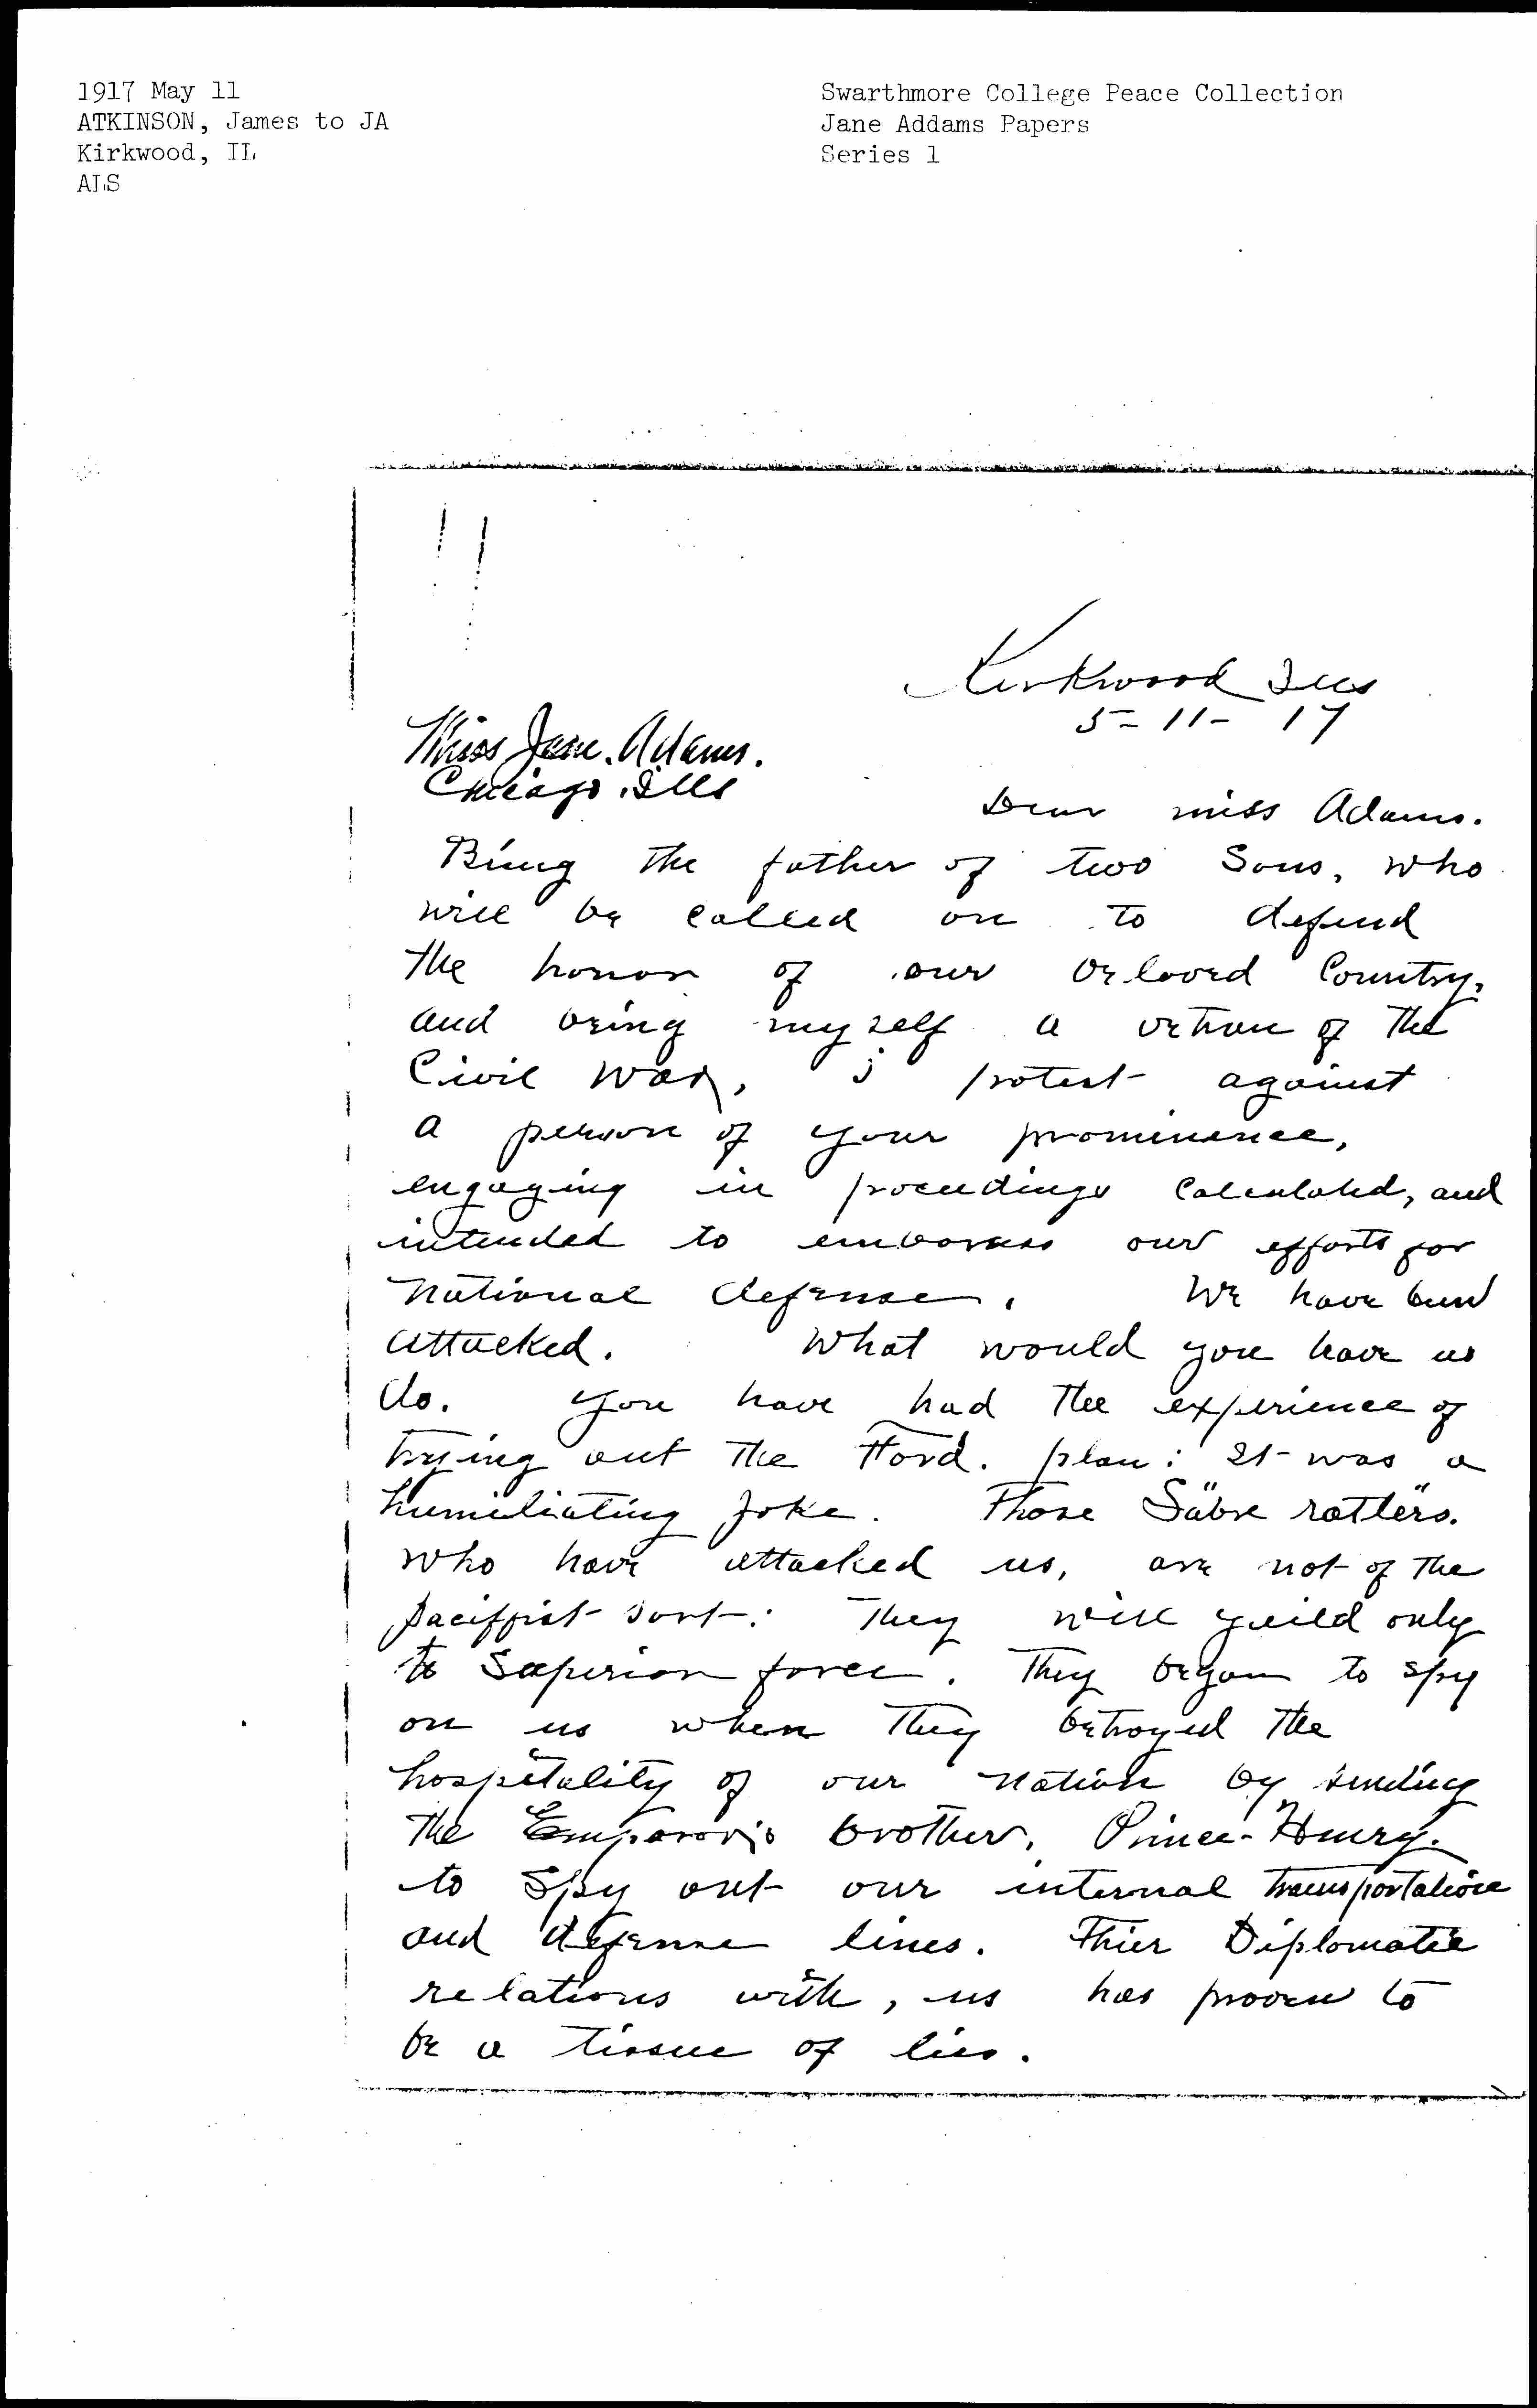 1917 May 11
ATKINSON, James to JA
Kirkwood, IL
ALS
Swarthmore College Peace Collection
Jane Addams Papers
Series 1
Kirkwood Ills
5-11-17
Miss Jane. Adams.
Chicago. Ills
Dear miss Adams.
Being the father of two Sons, who
will be called on to defend
the honor of our beloved Country,
and being myself a vetran of the
Civil War, i protest against
a person of your prominence,
engaging in proceedings Calculated, and
intended to embarass our efforts for
National defense. We have been
attacked. What would you have us
do. you have had the experience of
trying out the Ford. plan: It was a
humiliating joke. Those "Sabre rattlers".
who have attacked us, are not of the
paciffist sort: They will yeild only
to Superior force. They began to spy
on us when They betrayed the
hospitality of our Nation by sending
the Emperor's brother, Prince-Henry.
to Spy out our internal transportation
and defense lines. Thier Diplomatic
relations with, us has proven to
be a tissue of lies.